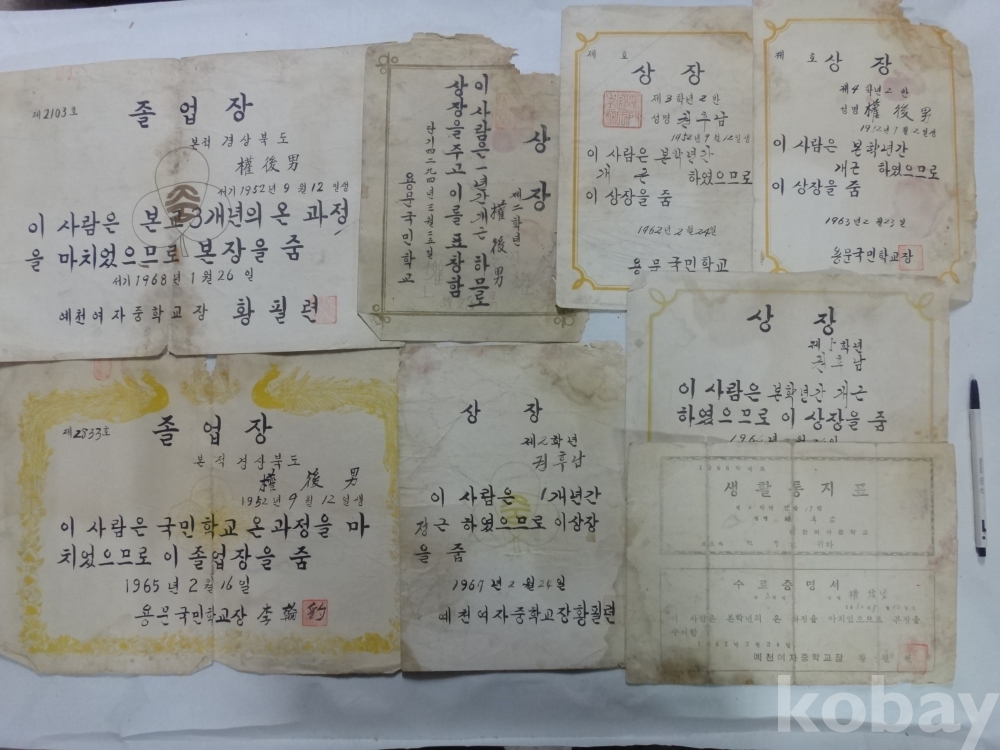 제2103호
졸 업 장
본적 경상북도
權後男
서기 1952년 9월 12일생
이 사람은 본교 3개년의 온 과정
을 마치었으므로 본장을 줌
서기 1968년 1월 26일
예천여자중학교장 황필련
상 장
제二학년
權後男
이 사람은 一년간 개근 하므로
상장을 주고 이를 표창함
단기四二九四년三월二五일
용문국민학교
제 호
상 장
제3학년 2반
성명 권후남
1952년 9월 12일생
이 사람은 본학년간
개 근 하였으므로
이 상장을 줌
1962년 2월 24일
용문국민학교
제 호
상 장
제4학년 2반
성명 權後男
이 사람은 본학년간
개근 하였으므로
이 상장을 줌
1963년 2월 23일
용문국민학교장
상 장
제5학년
권후남
이 사람은 본학년간 개근
하였으므로 이 상장을 줌
제2833호
졸 업 장
본적 경상북도
權 後 男
1952년 9월 12일생
이 사람은 국민학교 온 과정을 마
치었으므로 이 졸업장을 줌
1965년 2월 16일
용문국민학교장 李
상 장
제2학년
권후남
이 사람은 1개년간
정근 하였으므로 이 상장
을 줌
1967년 2월 24일
예천여자중학교장 황필련
생활통지표
수료증명서
이 사람은 본학년의 온 과정을 마치었으므로
수여함
예천여자중학교장
kobay